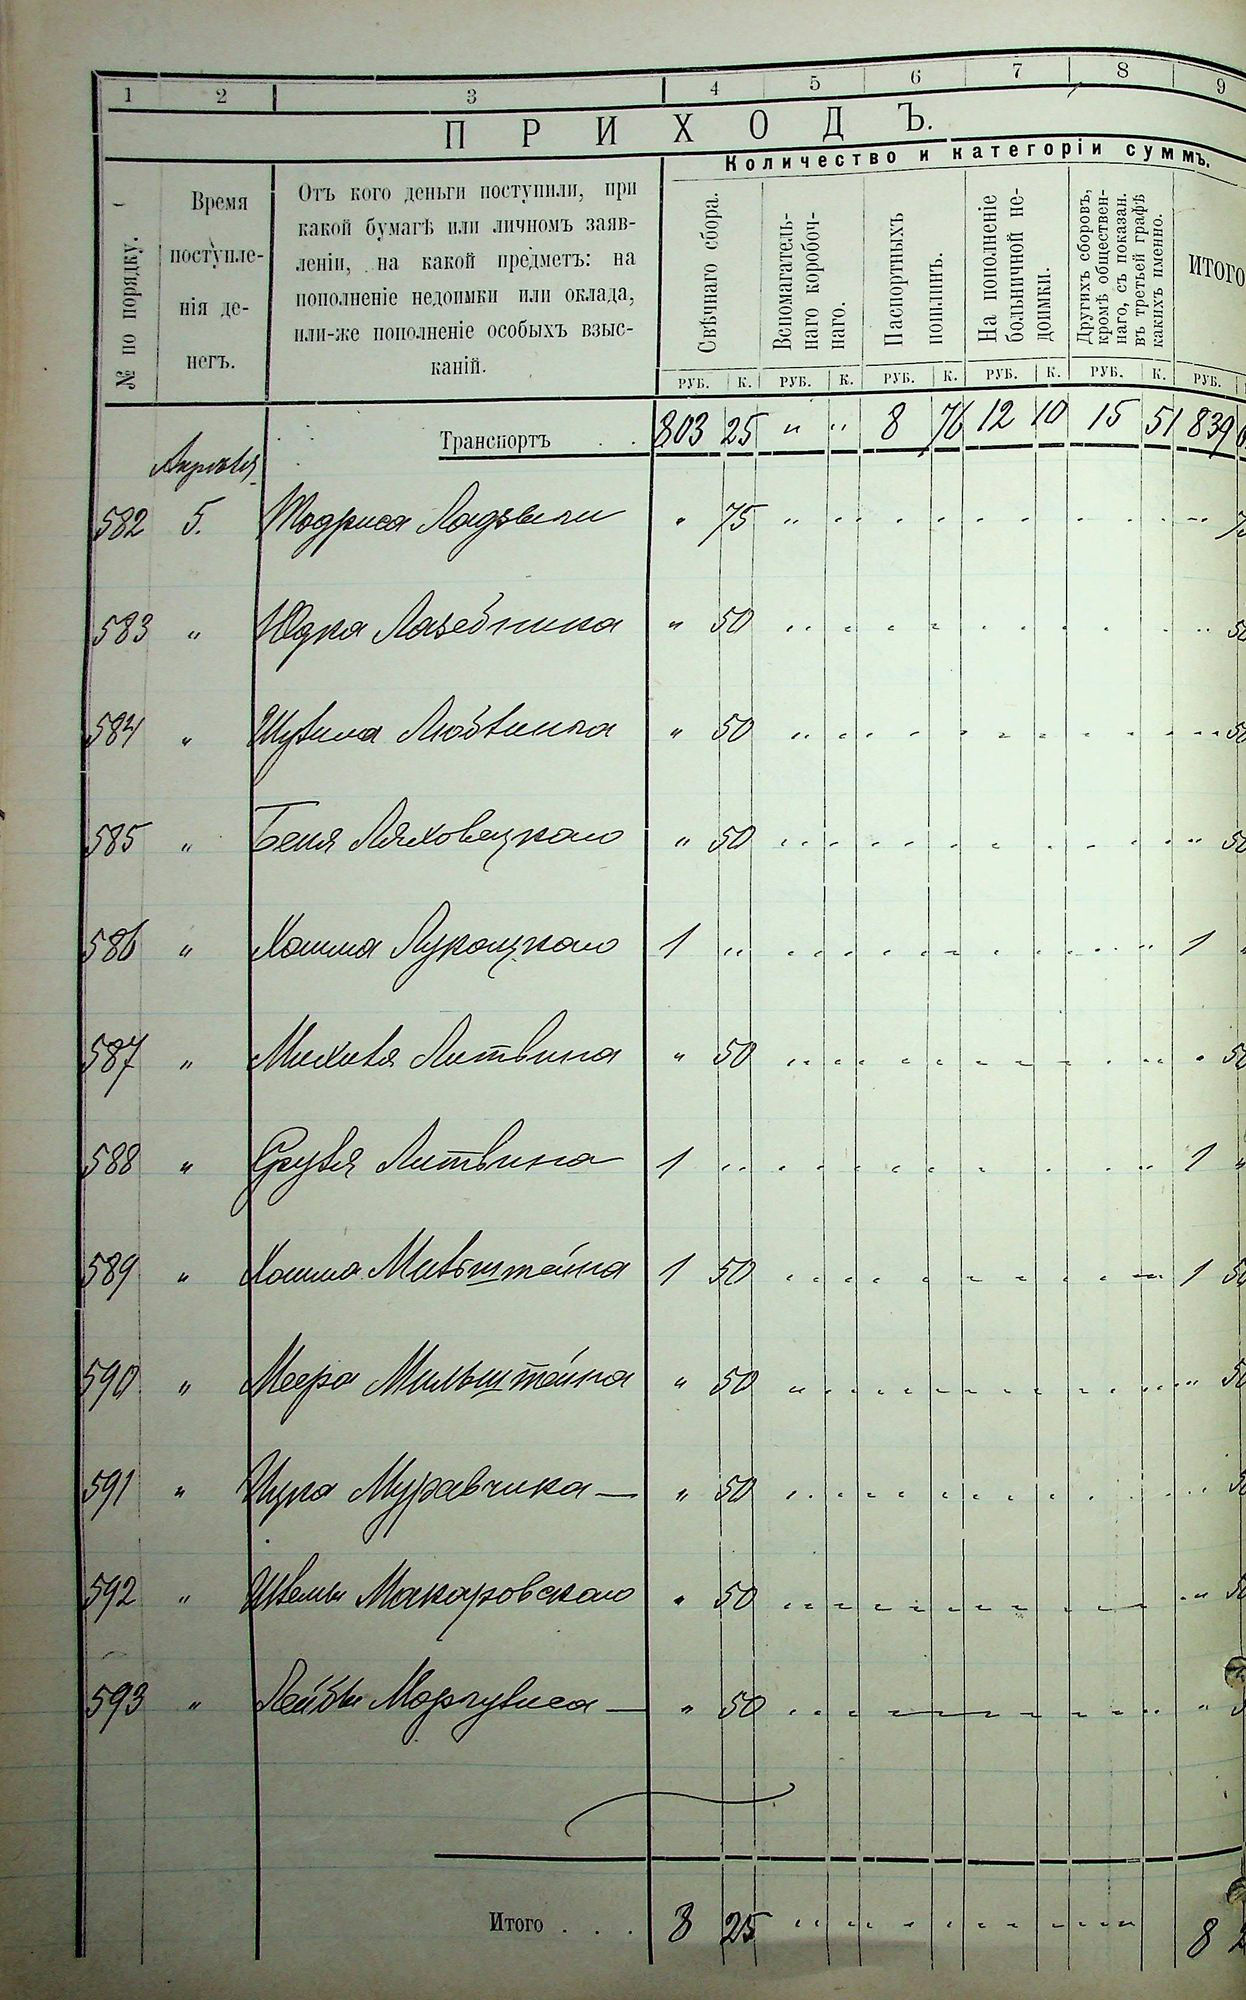 1 2 3 4 5 6 7 8 9
ПРИХОДЪ.
Количество и категоріи суммъ.
№ по порядку.
Время
поступле-
нія де-
негъ.
Отъ кого деньги поступили, при
какой бумагѣ или личномъ заяв-
леніи, на какой предметъ: на
пополненіе недоимки или оклада,
или-же пополненіе особыхъ взыс-
каній.
Свѣчнаго сбора.
Вспомагатель-
наго коробоч-
наго.
Паспортныхъ
пошлинъ.
На пополненіе
больничной не-
доимки.
Другихъ сборовъ,
кромѣ обществен-
наго, съ показан.
въ третьей графѣ
какихъ именно.
ИТОГО
РУБ. К. РУБ. К. РУБ. К. РУБ. К. РУБ. К. РУБ.
Транспортъ . . 803 25 " " 8 76 12 10 15 51 839
Апрѣля
582 5. 75
583 " Юдка Лазебника " 50 50
584 " " 50 50
585 " Беня Ляховецкаго " 50 50
586 " Хаима 1 " 1
587 " Михеля Литвина " 50 50
588 " Сруля Литвина 1 " 1
589 " Хаима Мильштейна 1 50 1 50
590 " Меера Мильштейна " 50 50
591 " Ицка Муравчика — " 50 50
592 " Макаровскаго " 50 50
593 " Лейбы Маргулиса — " 50
Итого . . . 8 25 8